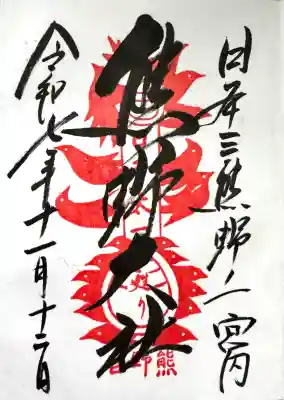 日本三熊野ノ一宮内
熊野大社
令和七年十一月十二日
熊野